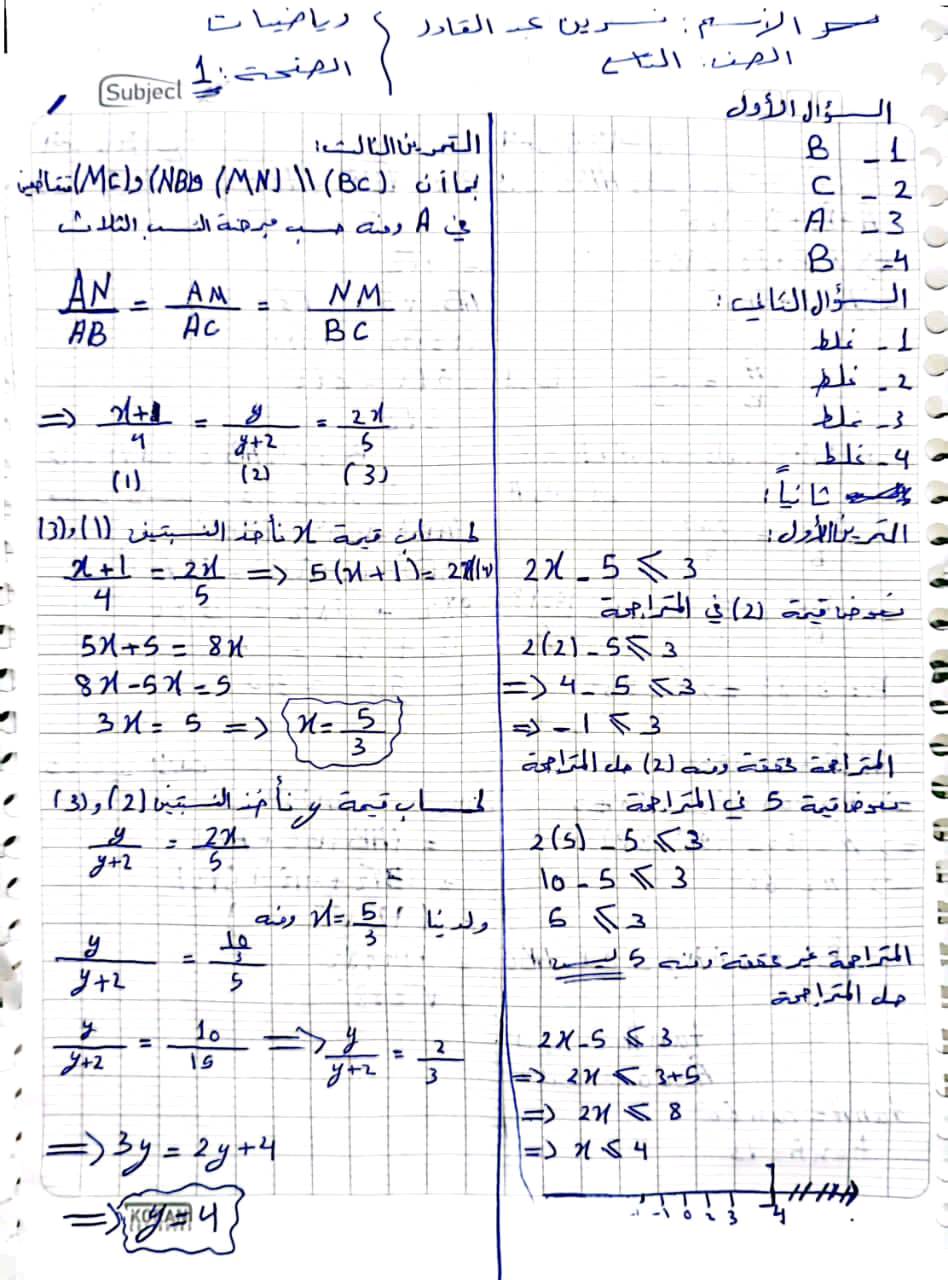 الاسم: نسرين عبد القادر
الصف: التاسع
رياضيات
الصفحة: 1
Subject
السؤال الأول
1 - B
2 - C
3 - A
4 - B
السؤال الثاني:
1 - غلط
2 - غلط
3 - غلط
4 - غلط
ثانياً:
التمرين الأول:
2x - 5 ⩽ 3
نعوض قيمة (2) في المتراجحة
2(2) - 5 ⩽ 3
=> 4 - 5 ⩽ 3
=> -1 ⩽ 3
المتراجحة محققة ومنه (2) حل المتراجحة
نعوض قيمة 5 في المتراجحة
2(5) - 5 ⩽ 3
10 - 5 ⩽ 3
5 ⩽ 3
المتراجحة غير محققة ومنه 5 ليست
حل المتراجحة
2x - 5 ⩽ 3
=> 2x ⩽ 3+5
=> 2x ⩽ 8
=> x ⩽ 4
-1 0 2 3 4
التمرين الثالث:
بما أن (BC) \\ (MN) و(NB) و(MC) متقاطعين
في A ومنه حسب مبرهنة النسب الثلاث
AN/AB = AM/AC = NM/BC
=> x+1/4 = y/y+2 = 2x/5
(1) (2) (3)
لحساب قيمة x نأخذ النسبتين (1) و(3)
x+1/4 = 2x/5 => 5(x+1) = 2x(4)
5x+5 = 8x
8x-5x = 5
3x = 5 => x = 5/3
لحساب قيمة y نأخذ النسبتين (2) و(3)
y/y+2 = 2x/5
ولدينا x = 5/3 ومنه
y/y+2 = 10/3/5
y/y+2 = 10/15 => y/y+2 = 2/3
=> 3y = 2y+4
=> y = 4